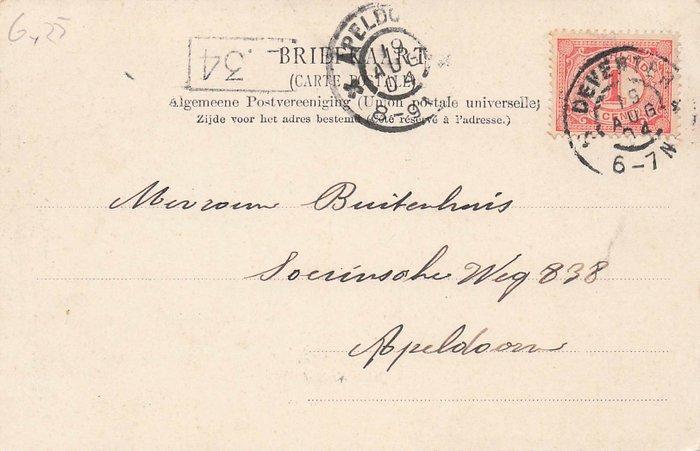 6,25
.34
BRIEFKAART
(CARTE POSTALE)
Algemeene Postvereeniging (Union postale universelle)
Zijde voor het adres bestemd (Côté réservé à l'adresse.)
APELDO
19
AUG
04
8-9
1
CENT
DEVENTER
19
AUG
04
6-7N
Mevrouw Buitenhuis
Soerensche Weg 838
Apeldoorn